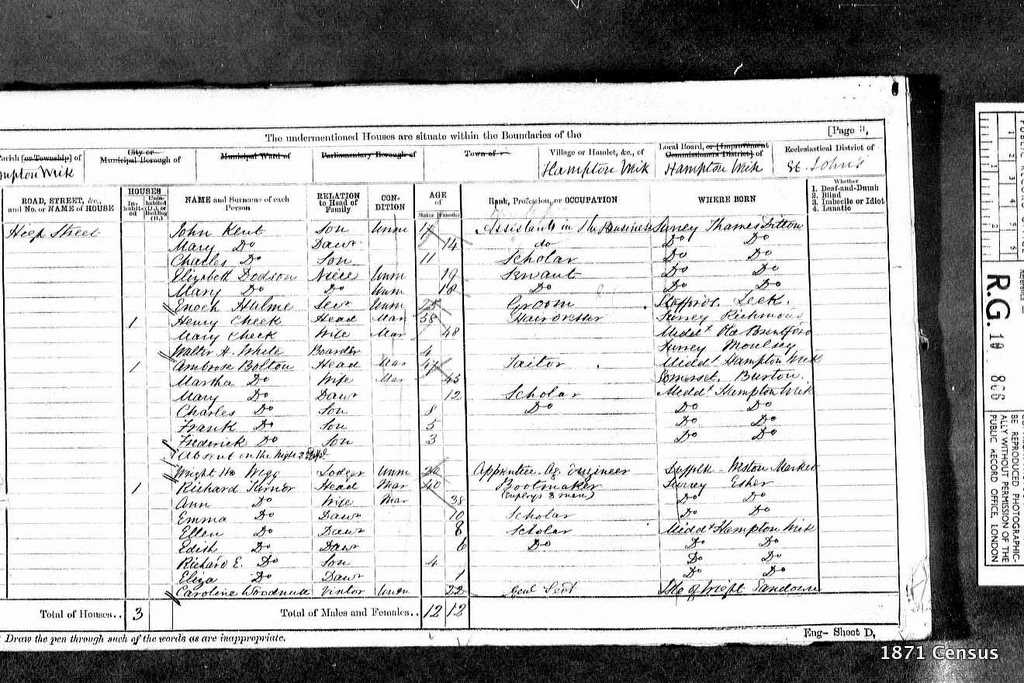 The undermentioned Houses are situate within the Boundaries of the [Page 3,
Parish [or Township] of City or Municipal Borough of Municipal Ward of Parliamentary Borough of Town of Village or Hamlet, &c., of Local Board, or [Improvement Commissioners District] of Ecclesiastical District of
Hampton Wik Hampton Wik Hampton Wik St. John's
ROAD, STREET, &c., and No. or NAME of HOUSE HOUSES Inhabited Uninhabited (U.), or Building (B.) NAME and Surname of each Person RELATION to Head of Family CONDITION AGE of Males Females Rank, Profession, or OCCUPATION WHERE BORN Whether 1. Deaf-and-Dumb 2. Blind 3. Imbecile or Idiot 4. Lunatic
Street John Kent Son Unm Assistants in the Business Surrey Thames Ditton
Mary Do Daur 14 do Do Do
Charles Do Son 11 Scholar Do Do
Elizabeth Dodson Niece Unm 19 Servant Do Do
Mary Do Do Unm 18 Do Do Do
Enoch Hulme Ser Unm Groom Leek.
1 Henry Cheek Head Mar 58 Surrey Richmond
Mary Cheek Wife Mar 48 Middx Old Brentford
Walter H. White Boarder 4 Surrey Moulsey
1 Ambrose Bolton Head Mar 47 Tailor Middx Hampton Wik
Martha Do Wife Mar 45 Somerset. Burton.
Mary Do Daur 12 Scholar Middx Hampton Wik
Charles Do Son 8 Do Do Do
Frank Do Son 5 Do Do
Frederick Do Son 3 Do Do
Absent on the Night
Wright Lodger Unm Apprentice Engineer Suffolk
1 Richard Head Mar 40 Bootmaker Surrey Esher
(Employs 3 men)
Ann Do Wife Mar 38 Do Do
Emma Do Daur 10 Scholar Do Do
Ellen Do Daur 8 Scholar Middx Hampton Wik
Edith Do Daur 6 Do Do Do
Richard E. Do Son 4 Do Do
Eliza Do Daur 1 Do Do
Caroline Visitor Unm 22 Genl Sert Isle of Wight Sandown
Total of Houses.. 3 Total of Males and Females.. 12 12
Draw the pen through such of the words as are inappropriate.
Eng- Sheet D,
R.G. 10
866
BE REPRODUCED PHOTOGRAPHIC-
ALLY WITHOUT PERMISSION OF THE
PUBLIC RECORD OFFICE, LONDON
1871 Census